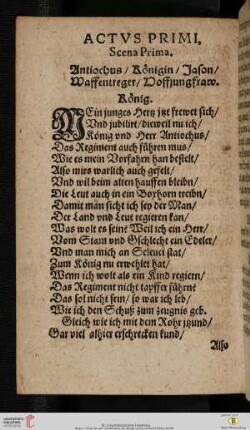 ACTVS PRIMI,
Scena Prima.
Antiochus / Königin / Jason /
Waffentreger / Hoffjungfraw.
König.
MEin junges Hertz jtzt frewet sich /
Vnd jubilirt / dieweil nu ich /
König vnd Herr Antiochus /
Das Regiment auch führen mus /
Wie es mein Vorfahrn han bestelt /
Also mirs warlich auch gefelt /
Vnd wil beim alten hauffen bleibn /
Die Leut auch in ein Boxhorn treibn /
Damit man sicht ich sey der Man /
Der Land vnd Leut regieren kan /
Was wolt es sein? Weil ich ein Herr /
Vom Stam vnd Gschlecht ein Edeler /
Vnd man mich an Seleuci stat /
Zum König nu erwehlet hat /
Wenn ich wolt als ein Kind regiern /
Das Regiment nicht tapffer führn?
Das sol nicht sein / so war ich leb /
Wie ich den Schutz zum zeugnis geb.
Gleich wie ich mit dem Rohr jtzund /
Gar viel alhier erschrecken kund /
Also